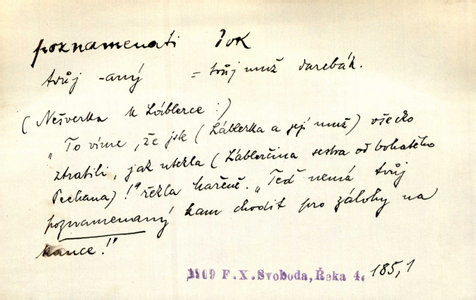 poznamenati dok
tvůj -aný = tvůj muž darebák.
(Nešverka k Láblerce:)
„To víme, že jste (Láblerka a její muž) všecko
ztratili, jak utekla (Láblerčina sestra od bohatého
Pechana)!" řekla hašeně. „Teď nemá tvůj
poznamenaný kam chodit pro zálohy na
kance!"
1909 F.X.Svoboda, Řeka 4. 185,1